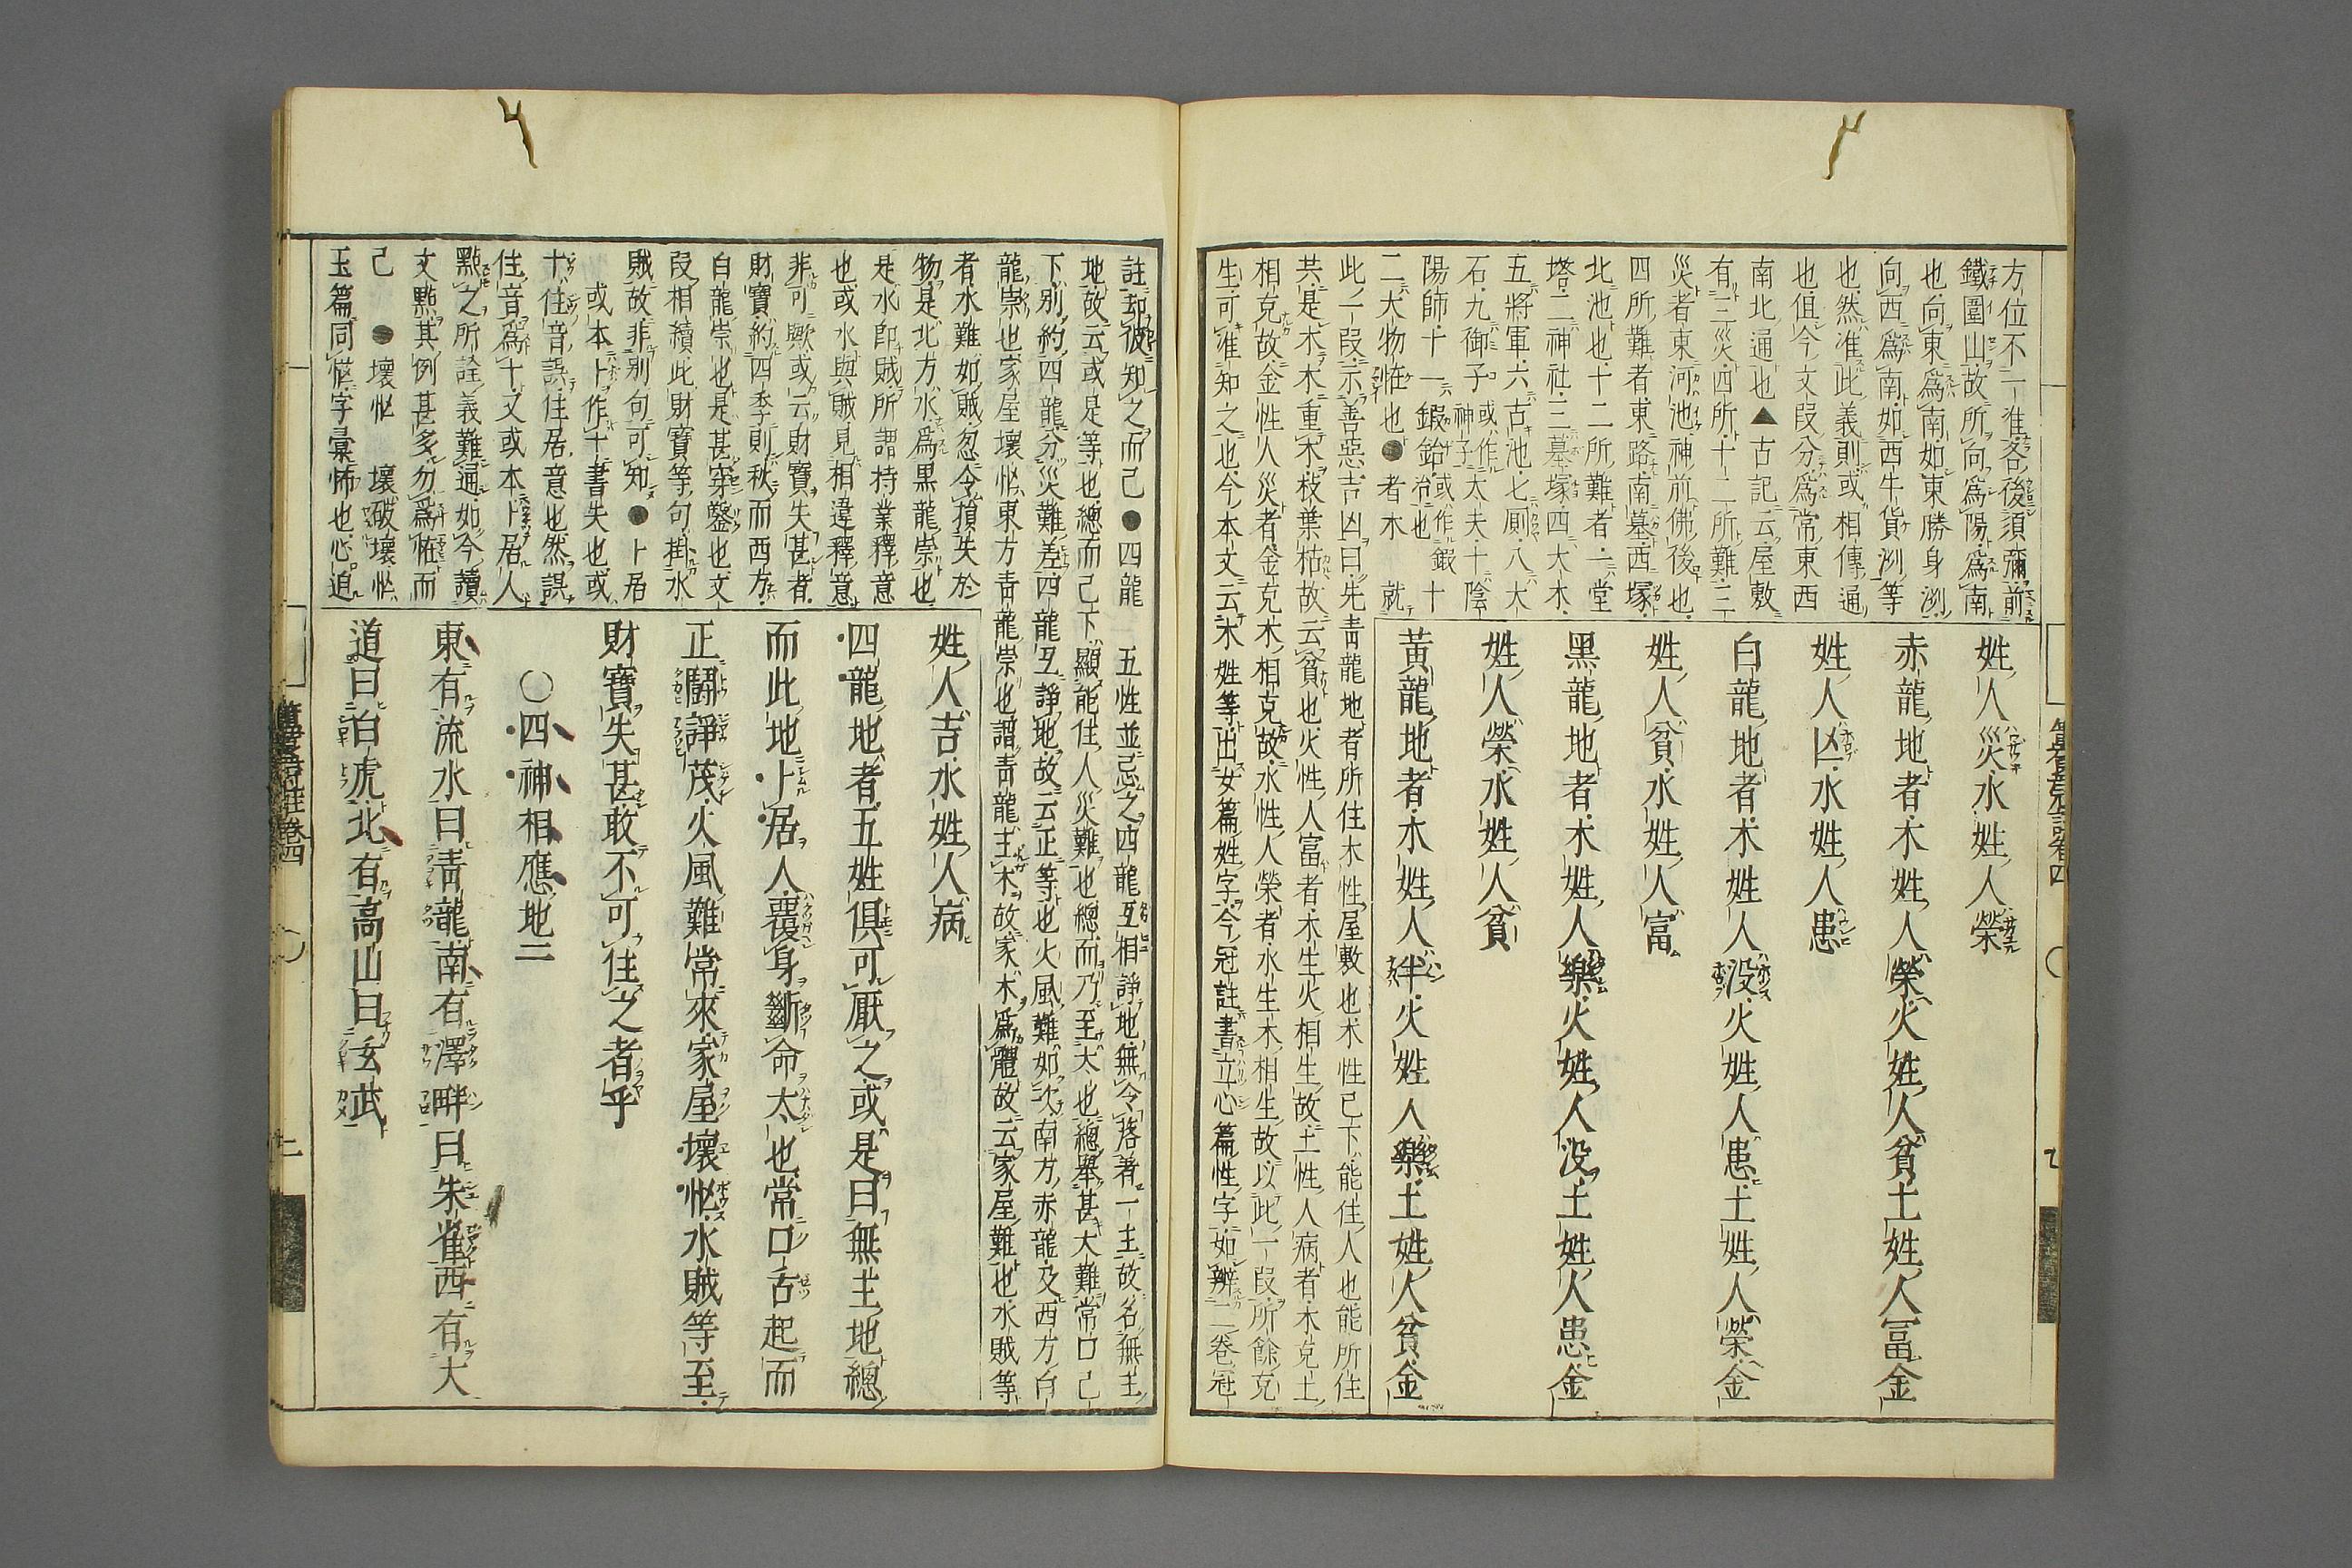 方位不一准各後須彌前
鐵圍山故所向爲陽爲南
也向東爲南如東勝身洲
向西爲南如西牛貨洲等
也然准此義則或相傳通
也但今文段分爲常東西
南北通也▲古記云屋敷
有三災四所十二所難三
災者東河池神前佛後也
四所難者東路南墓西塚
北池也十二所難者一堂
塔二神社三墓塚四大木
五將軍六古池七厠八大
石九御子或作神子太夫十陰
陽師十一鍛鉛冶也或作鍛十
二犬物恠也●者木　就
姓人災水姓人榮
赤龍地者木姓人榮火姓人貧土姓人冨金
姓人凶水姓人患
白龍地者木姓人没火姓人患土姓人榮金
姓人貧水姓人富
黑龍地者木姓人樂火姓人没土姓人患金
姓人榮水姓人貧
黃龍地者木姓人半火姓人樂土姓人貧金
此一段示善惡吉凶曰先青龍地者所住木性屋敷也木性已下能住人也能所住
共是木木重木枝葉枯故云貧也火性人富者木生火相生故土性人病者木克土
相克故金性人災者金克木相克故水性人榮者水生木相生故以此一段所餘克
生可准知之也今本文云木姓等出女篇姓字今冠註書立心篇性字如辨二卷冠
註却彼知之而已●四龍　五性並忌之四龍互相諍地無令落著一主故名無主
地故云或是等也總而已下顯能住人災難也總而乃至太也總舉甚大難常口已
下別約四龍分災難差四龍互諍地故云正等也火風難如次南方赤龍及西方白
龍崇也家屋壞恠東方青龍崇也謂青龍主木故家木爲體故云家屋難也水賊等
者水難如賊忽令損失於
物是北方水爲黑龍崇也
是水卽賊所謂持業釋意
也或水與賊見相違釋意
非可歟或云財寶失甚者
財寶約四季則秋而西方
白龍崇也是甚穿鑿也文
段相續此財寶等句掛水
賊故非別句可知●卜居
或本卜作十書失也或
十住音誤住居意也然誤
住音爲十又或本卜居人
點之所詮義難通如今讀
文點其例甚多勿爲恠而
已　●壞恠　壞破壞恠
玉篇同恠字彙怖也心迫
姓人吉水姓人病
四龍地者五姓俱可厭之或是曰無主地總
而此地卜居人覆身斷命太也常口舌起而
正鬪諍茂火風難常來家屋壞恠水賊等至
財寶失甚敢不可住之者乎
○四神相應地二
東有流水曰青龍南有澤畔曰朱雀西有大
道曰白虎北有高山曰玄武